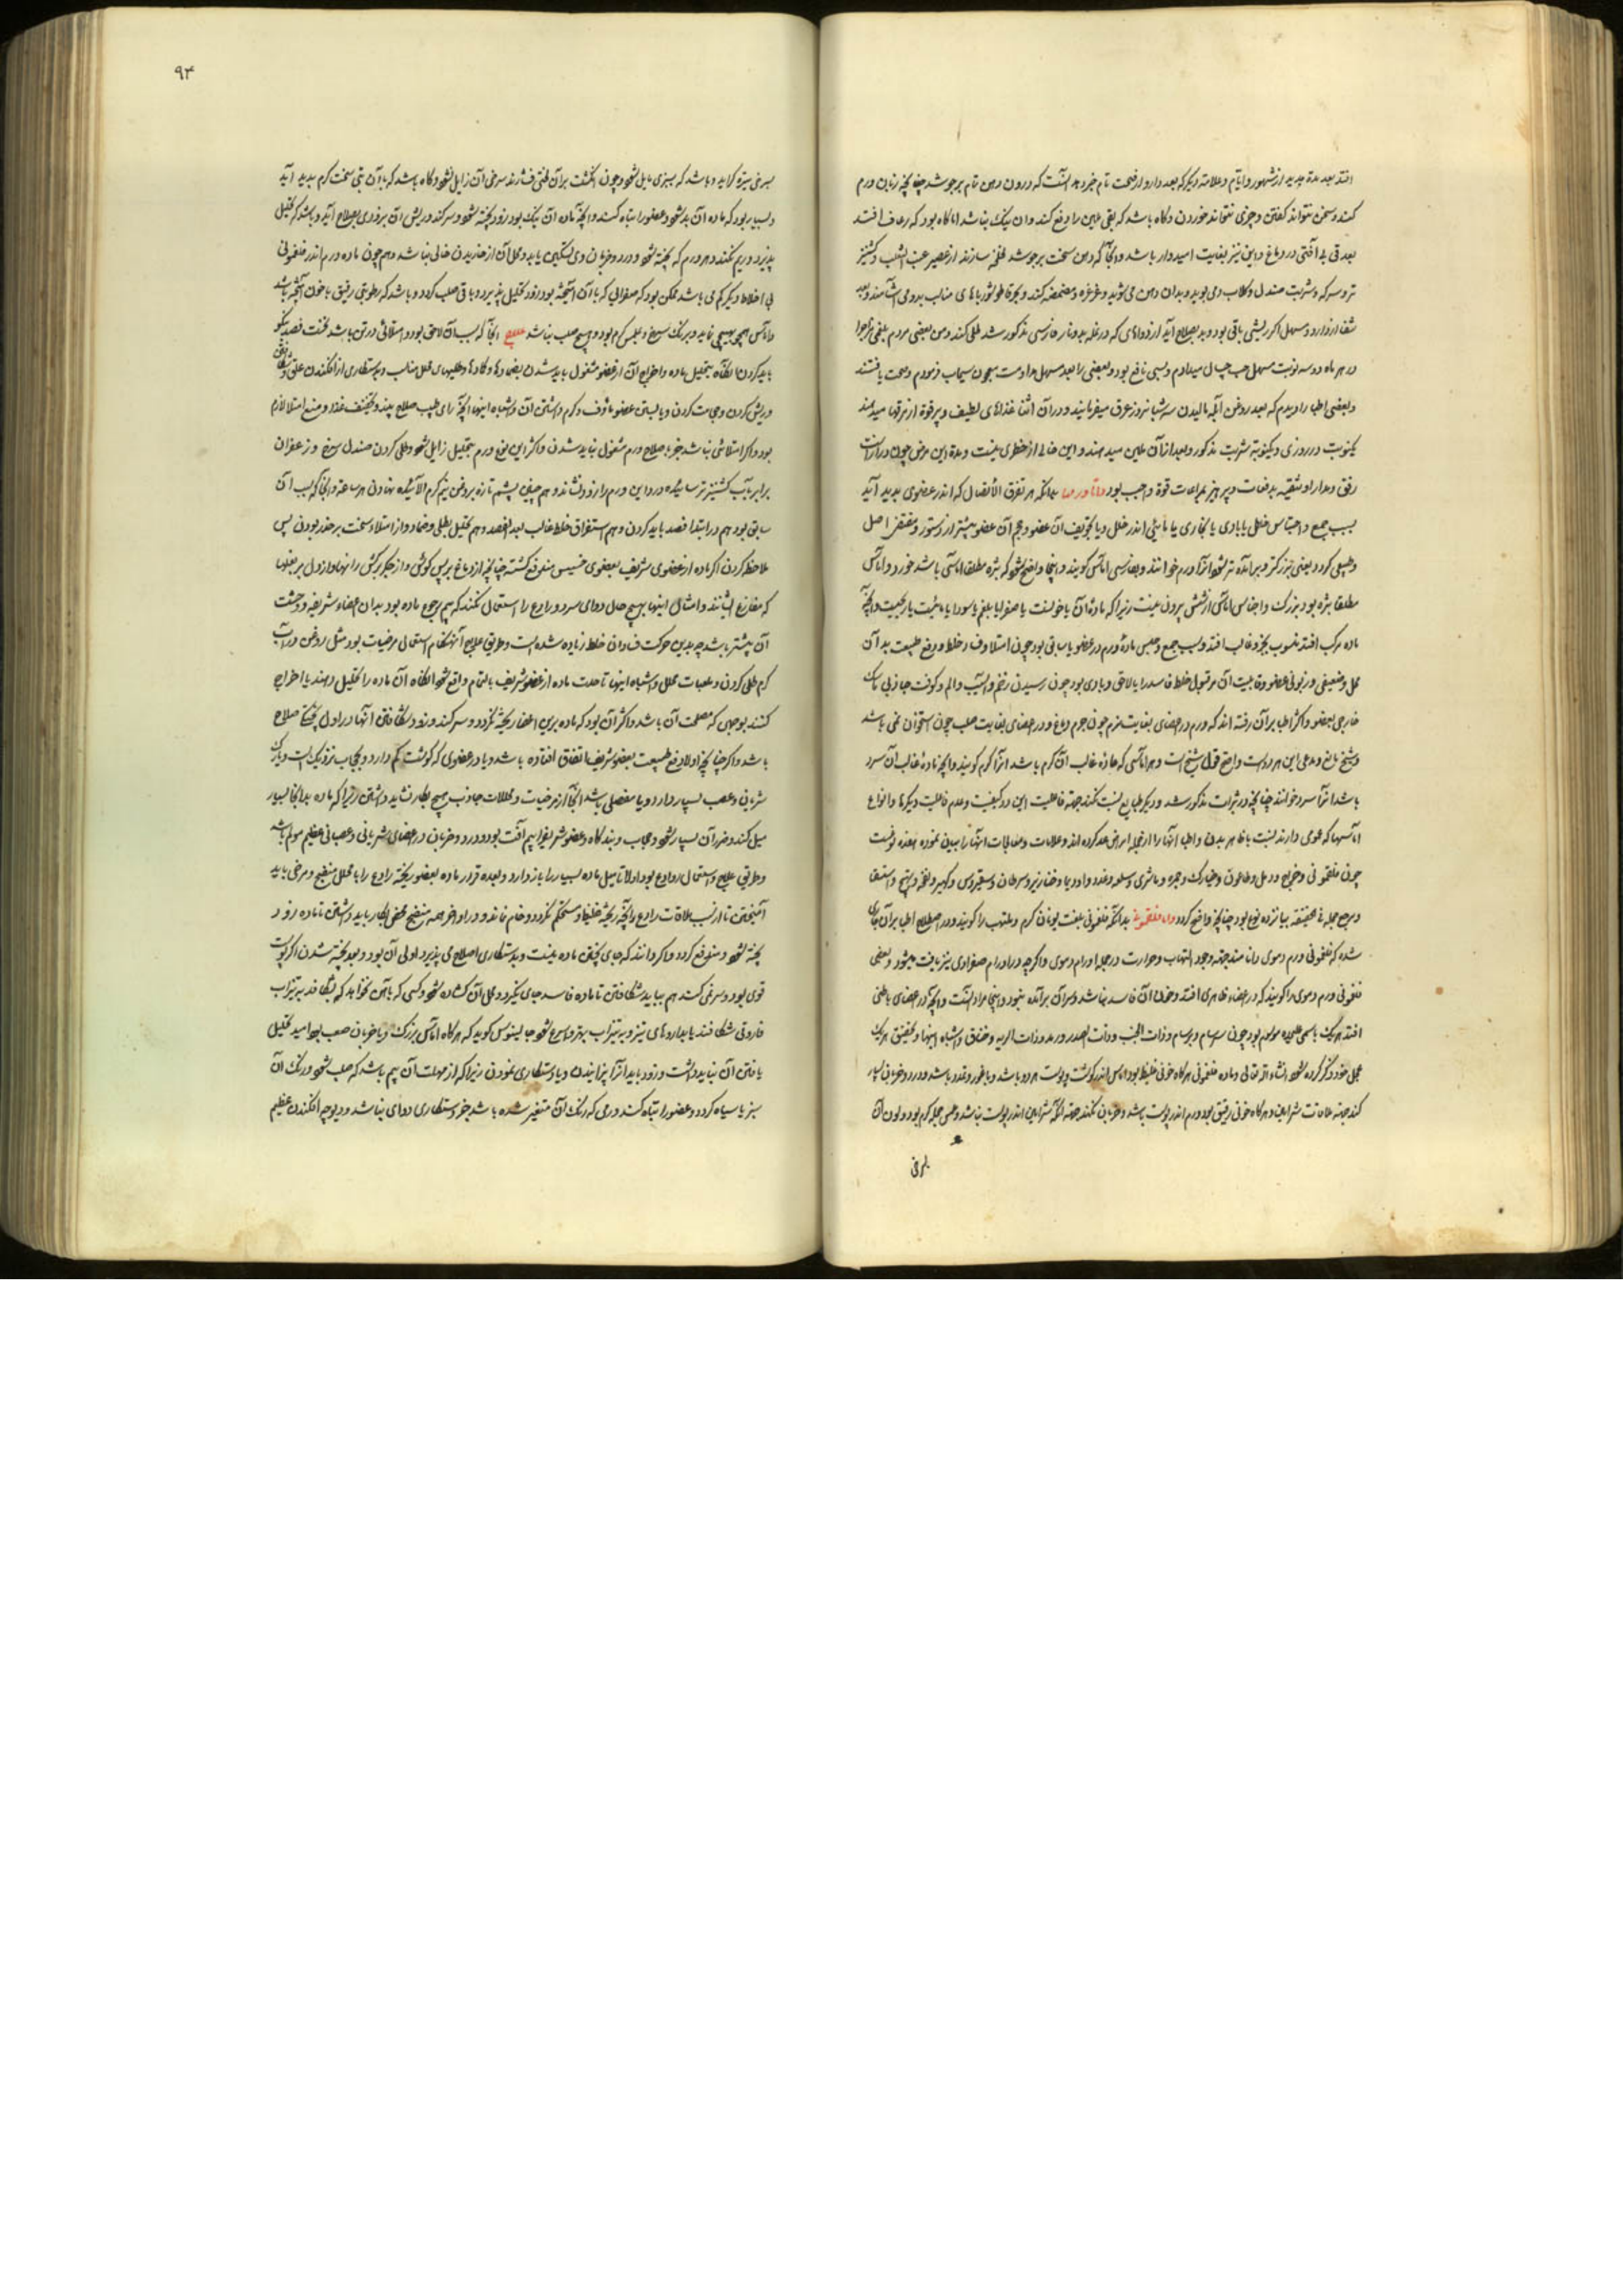 افتد بعد مدة مدید از شهور و ایام و علامة دیگر که بعد دارو از صحت تام خبر دهد آنست که درون دهن تام برجوشد چنانچه زبان ورم
کند و سخن نتواند گفتن و چیزی نتواند خوردن و گاه باشد که بقی همین را دفع کند و ان نیک نباشد اما گاه بود که رعاف افتد
بعد قی بی آفتی در دماغ و این نیز بغایت امیدوار باشد و آنجا که دهن سخت برجوشد سازند از عصیر عنب الثعلب و کشنیز
تر و سرکه و شربت صندل و گلاب می بوید و بدان دهن می شوید و غرغره و مضمضه کند
باقی بود و بد بصلاح آید از دواهای که در نار فارسی مذکور شد طلی کند و من بعضی مردم بلغمی مزاج را
در هر ماه دو سه نوبت مسهل حب میدادم و بسی نافع بود و بعضی را بعد مسهل مداومت معجون سیماب فرمودم و صحت یافتند
و بعضی اطبا را دیدم که بعد روغن مالیدن سه شبانروز عرق میفرمایند و در آن اثنا غذاهای لطیف و پرقوة از مرقها میدهند
یکنوبت در روزی و یکنوبة شربت مذکور و بعد از آن ملین میدهند و این خالی از خطری نیست و مدة این مرض چون دراز است
رفق و مدارا و تنقیه بدفعات و پرهیز بمراعات قوة واجب بود واما ورمها بدانکه هر تفرق الاتصال که اندر عضوی پدید آید
بسبب جمع و احتباس خلطی یا بادی یا بخاری یا مائیتی اندر خلل و یا تجویف آن عضو و حجم آن عضو بیشتر از دستور و مقتضی اصل
و طبیعی گردد یعنی بزرگتر و برآمده تر شود آنرا ورم خوانند و بفارسی اماس گویند و اینجا واضح شود که بثره مطلقا اماسی باشد خورد و اماس
مطلقا بثره بود بزرگ و اجناس اماس از شش بیرون نیست زیرا که مادۀ آن یا خونست یا صفرا یا بلغم یا سودا یا مائیت یا ریحیت و آنچه
ماده مرکب افتد منسوب بجزو غالب افتد و سبب جمع و حبس مادۀ ورم در عضو یا سابقی بود چون امتلا و خلط و دفع طبیعت بدان
محل و ضعیفی و زبونی عضو و قابلیت آن مر قبول خلط فاسد را یا لاحقی و بادی بود چون رسیدن زخم و آسیب و الم و کوفت
خارجی بعضو و اکثر اطبا برآن رفته اند که ورم در اعضای بغایت نرم چون جرم دماغ و در اعضای بغایت صلب چون استخوان نمی باشد
و شیخ مدعی این هر دو است و اصح قول شیخ است و هر اماسی که مادۀ غالب آن گرم باشد آنرا گرم گویند و آنچه مادۀ غالب آن سرد
باشد آنرا سرد خوانند چنانچه در مذکور شد و دیگر طبایع نسبت نکنند جهة فاعلیت این دو کیفیت و عدم فاعلیت دیگرها و انواع
اماسها که عمومی دارند نسبت با ظاهر بدن و اطبا آنها را از جمله امراض عد کرده اند و علامات و معالجات آنها را بیان نموده هفده نوعست
چون فلغمونی و خراج و دمل و طاعون و خیارک و جمره و ماشری و سلعه و غدد و و خنازیر و سرطان و سقیروس و نفخه و تهیج و استسقا
و مرجع جمله فی الحقیقة بپانزده نوع بود چنانچه واضح گردد واما فلغمونی بدانکه فلغمونی بلغت یونان گرم و ملتهب را گویند و در اصطلاح اطبا برآن
شده که فلغمونی ورم دموی را نامند جهة وجود التهاب و حرارت در جمله اورام دموی و اگرچه در اورام صفراوی نیز یافت میشود و بعضی
فلغمونی ورم دموی را گویند که در اعضاء ظاهری افتد و خون آن فاسد نباشد و سر آن برآمده نبود و اینجا مراد آنست و آنچه در اعضای باطنی
افتد هر یک باسمی علیحده موسوم بود چون سرسام و برسام و ذات الجنب و ذات الصدر و رمد و ذات الریه و خناق و اشباه اینها و تحقیق هر یک
بمحل خود ذکر کرده شود انشاء الله تعالی و ماده فلغمونی هرگاه خونی غلیظ بود اماس اندر گوشت و پوست هر دو باشد و با غور و تمدد باشد و درد و ضربان بسیار
کند جهة ملاقات شراین و هرگاه خونی رقیق بود ورم اندر پوست باشد و ضربان نکند جهة آنکه شراین اندر پوست نباشد و مس جمله گرم بود و لون آن
بسرخی
۹۴
بسرخی تیره گراید و باشد که بسبزی مایل شود و چون انگشت برآن لختی فشارند سرخی آن زایل شود و گاه باشد که با آن تبی سخت گرم پدید آید
و بسیار بود که ماده آن بد شود و عضو را تباه کند و آنچه ماده آن نیک بود زود پخته شود و سر کند و ریش آن بزودی بصلاح آید و باشد که تحلیل
پذیرد و ریم نکند و هر ورم که پخته شود و درد و ضربان وی تسکین یابد و محل آن از خاریدن خالی نباشد و هم چون ماده ورم اندر فلغمونی
بی اخلاط دیگر کم می باشد ممکن بود که صفرائی که با آن آمیخته بود زود تحلیل پذیرد و باقی صلب گردد و باشد که رطوبتی رقیق با خون آمیخته باشد
و اماس تهیجی نماید و برنگ سرخ و ملمس گرم بود و هیچ صلب نباشد علاج آنجا که سبب آن لاحقی بود و امتلائی در تن باشد نخست فصد نیکو
باید کردن آنگاه بتحلیل ماده و اخراج آن از عضو مشغول باید شدن بضمادها و کمادها و طلیهای محلل مناسب و بدستکاری از افکندن علق
و ریش کردن و حجامت کردن و یا بستن عضو ماؤف و گرم داشتن آن و اشباه اینها آنچه رای طبیب صلاح بیند و تخفیف غذا و منع امتلا لازم
بود و اگر امتلائی نباشد جز بصلاح ورم مشغول نباید شدن و اکثر این نوع ورم بتحلیل زایل شود و طلی کردن صندل سرخ و زعفران
برابر بآب کشنیز تر سائیده درد این ورم را زود نشاند و هم چنین پشم تازه بروغن نیم گرم آلائیده نهادن هر ساعة و آنجا که سبب آن
سابقی بود هم در ابتدا فصد باید کردن و هم استفراغ خلط غالب بعد الفصد و هم تحلیل بطلی و ضماد و از امتلاء سخت برحذر بودن پس
ملاحظه کردن اگر ماده از عضوی شریف بعضوی خسیس مندفع گشته چنانچه از دماغ به پس گوش و از جگر به کش رانها و از دل به بغلها
که مفارغ ایشانند و امثال اینها بهیچ حال دوای سرد و رادع را استعمال نکنند که بیم رجوع ماده بود بدان اعضاء شریفه و وحشت
آن بیشتر باشد چه بدین حرکت فسادان خلط زیاده شده است و طریق علاج آنهنگام استعمال مرخیات بود مثل روغن و آب
گرم طلی کردن و لعابات محلل و اشباه اینها تا حدت ماده از عضو شریف بالتمام واقع شود آنگاه آن ماده را تحلیل دهند یا اخراج
کنند بوجهی که مصلحت آن باشد و اکثر آن بود که ماده برین اعضا ریخته گردد و سر کند و زود شکافتن آنها در اول پختگی صلاح
باشد و اگر چنانچه اولا دفع طبیعت بعضو شریف اتفاق افتاده باشد و یا در عضوی که گوشت کم دارد و بحجاب نزدیک است و یا رگ
شریانی و عصب بسیار دارد و یا مفصلی باشد آنجا از مرخیات و محللات جاذب هیچ بکار نشاید داشتن زیرا که ماده بدانجا بسیار
میل کند و ضرر آن بسیار شود و حجاب و بندگاه و عضو شریف را بیم آفت بود و درد و ضربان در اعضای شریانی و عصبانی عظیم مولم باشد
و طریق علاج استعمال روادع بود اولا تا میل ماده بسیار را باز دارد و بعده قدر ماده بعضو ریخته رادع را با محلل منضج و مرخی باید
آمیختن تا از سبب ملاقات رادع آنچه ریخته غلیظ و مستحکم نگردد و خام نماند و در اواخر همه منضج محض بکار باید داشتن تا ماده زود
پخته شود و مندفع گردد و اگر دانند که جای پختن ماده نیست و بدستکاری اصلاح می پذیرد اولی آن بود و بعد پخته شدن اگر پوست
قوی بود و سر نمی کند هم بباید شکافتن تا ماده فاسد جای نگیرد و محل آن گشاده شود و کسی که بآهن نخواهد که بشکافند به تیزاب
فاروقی شکافند یا بداروهای تیز و به تیزاب بهتر و اسرع شود جالینوس گوید که هرگاه اماس بزرگ و با ضربان صعب بود امید تحلیل
یافتن آن نباید داشت و زود باید آنرا پزانیدن و یا دستکاری نمودن زیرا که از مهلت آن بیم باشد که صلب شود و رنگ آن
سبز یا سیاه گردد و عضو را تباه کند و رمی که رنگ آن متغیر شده باشد جز دستکاری دوای نباشد و دیوچه افکندن عظیم